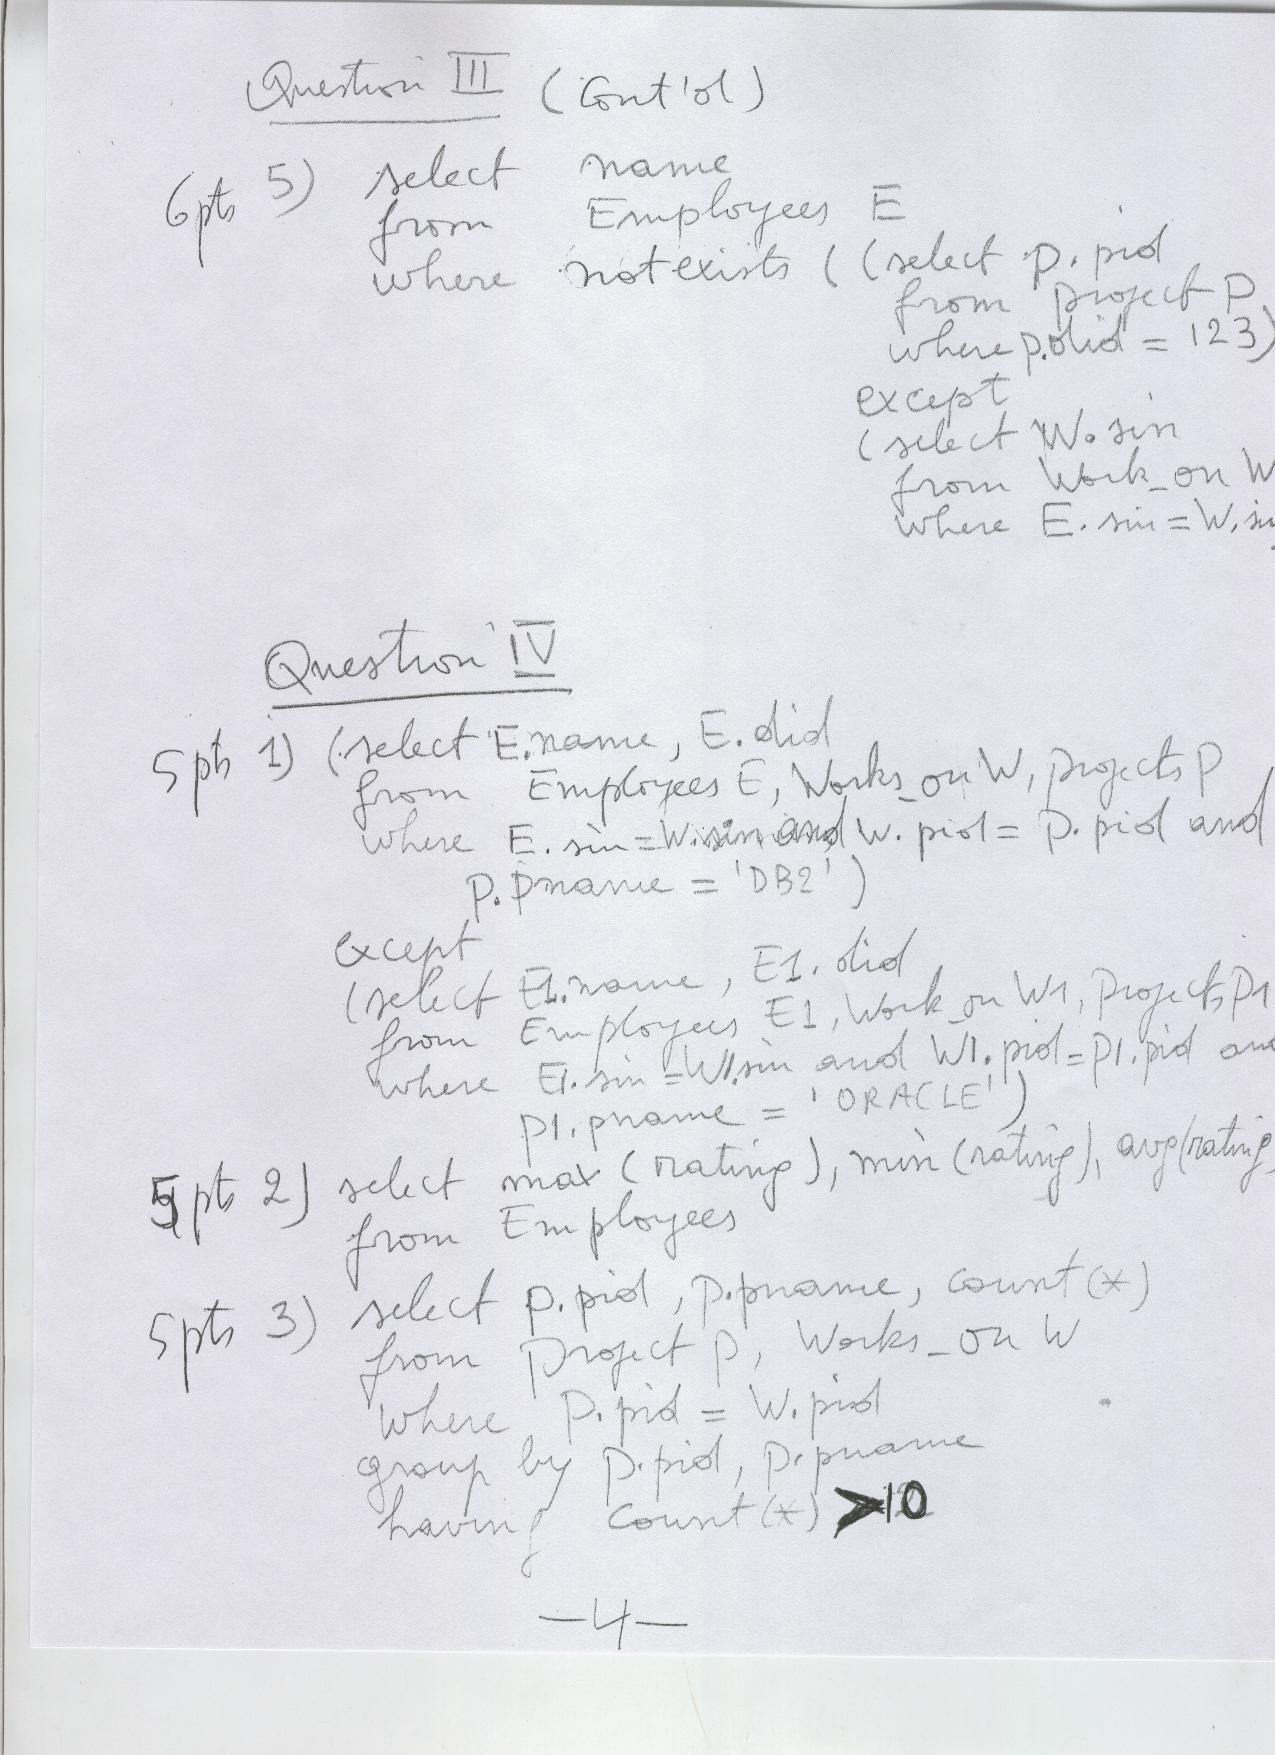 Question III (Cont'd)
6pts 5) select name
from Employees E
where not exists ( (select p. pid
from project P
where p.did = 123)
except
(select W. sin
from Work_on W
where E. sin = W. sin
Question IV
5pts 1) (select E.name, E. did
from Employees E, Works_on W, projects P
where E. sin = W.sin and W. pid = P. pid and
P. pname = 'DB2' )
except
(select E1.name, E1. did
from Employees E1, Work_on W1, projects P1
where E1. sin = W1.sin and W1. pid = P1. pid and
P1. pname = 'ORACLE' )
5pts 2) select max (rating), min (rating), avg(rating
from Employees
5pts 3) select p. pid, p. pname, count(*)
from project P, Works_on W
where P. pid = W. pid
group by p. pid, p. pname
having count(*) >10
-4-